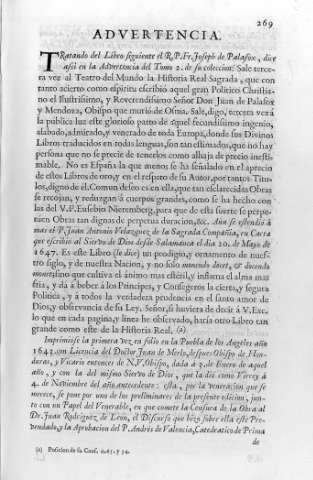 269
ADVERTENCIA.
TRatando del Libro siguiente el R.P.Fr.Joseph de Palafox, dice
assi en la Advertencia del Tomo 2. de su coleccion: Sale terce-
ra vez al Teatro del Mundo la Historia Real Sagrada, que con
tanto acierto como espiritu escribiò aquel gran Politico Christia-
no el Ilustrissimo, y Reverendissimo Señor Don Juan de Palafox
y Mendoza, Obispo que murió de Osma. Sale, digo, tercera vez à
la publica luz este glorioso parto de aquel fecundissimo ingenio,
alabado, admirado, y venerado de toda Europa, donde sus Divinos
Libros traducidos en todas lenguas, son tan estimados, que no hay
persona que no se precie de tenerlos como alhaja de precio inesti-
mable. No es España la que menos se ha señalado en el aprecio
de estos Libros de oro, y en el respeto de su Autor, por tantos Titu-
los, digno de èl. Comun deseo es en ella, que tan esclarecidas Obras
se recojan, y reduzgan à cuerpos grandes, como se ha hecho con
las del V.P.Eusebio Nieremberg, para que de esta suerte se perpe-
tuen Obras tan dignas de perpetua duracion, &c. Aùn se estendiò à
mas el P. Juan Antonio Velazquez de la Sagrada Compañia, en Carta
que escribiò al Siervo de Dios desde Salamanca el dia 20. de Mayo de
1647. Es este Libro (le dice) un prodigio, y ornamento de nues-
tro siglo, y de nuestra Nacion, y no solo monendo docet, & docendo
monet, sino que cultiva el animo mas estèril, y inflama el alma mas
fria, y dà à beber à los Principes, y Consegeros la cierta, y segura
Politica, y à todos la verdadera prudencia en el santo amor de
Dios, y observancia de su Ley. Señor, si huviera de decir à V. Exc.
lo que en cada pagina, y linea he observado, haria otro Libro tan
grande como este de la Historia Real. (a)
Imprimiòse la primera vez en folio en la Puebla de los Angeles año
1643. con Licencia del Doctor Juan de Merlo, despues Obispo de Hon-
duras, y Vicario entonces de N.V.Obispo, dada à 7. de Enero de aquel
año, y con la del mismo Siervo de Dios, que la diò como Virrey à
4. de Noviembre del año antecedente: esta, por la veneracion que se
merece, se pone por uno de los preliminares de la presente edicion, jun-
to con un Papel del Venerable, en que comete la Censura de la Obra al
Dr. Juan Rodriguez de Leon, el Discurso que hizo sobre ella este Pre-
bendado, y la Aprobacion del P. Andrès de Valencia, Catedratico de Prima
de
(a) Posicion de su Caus.